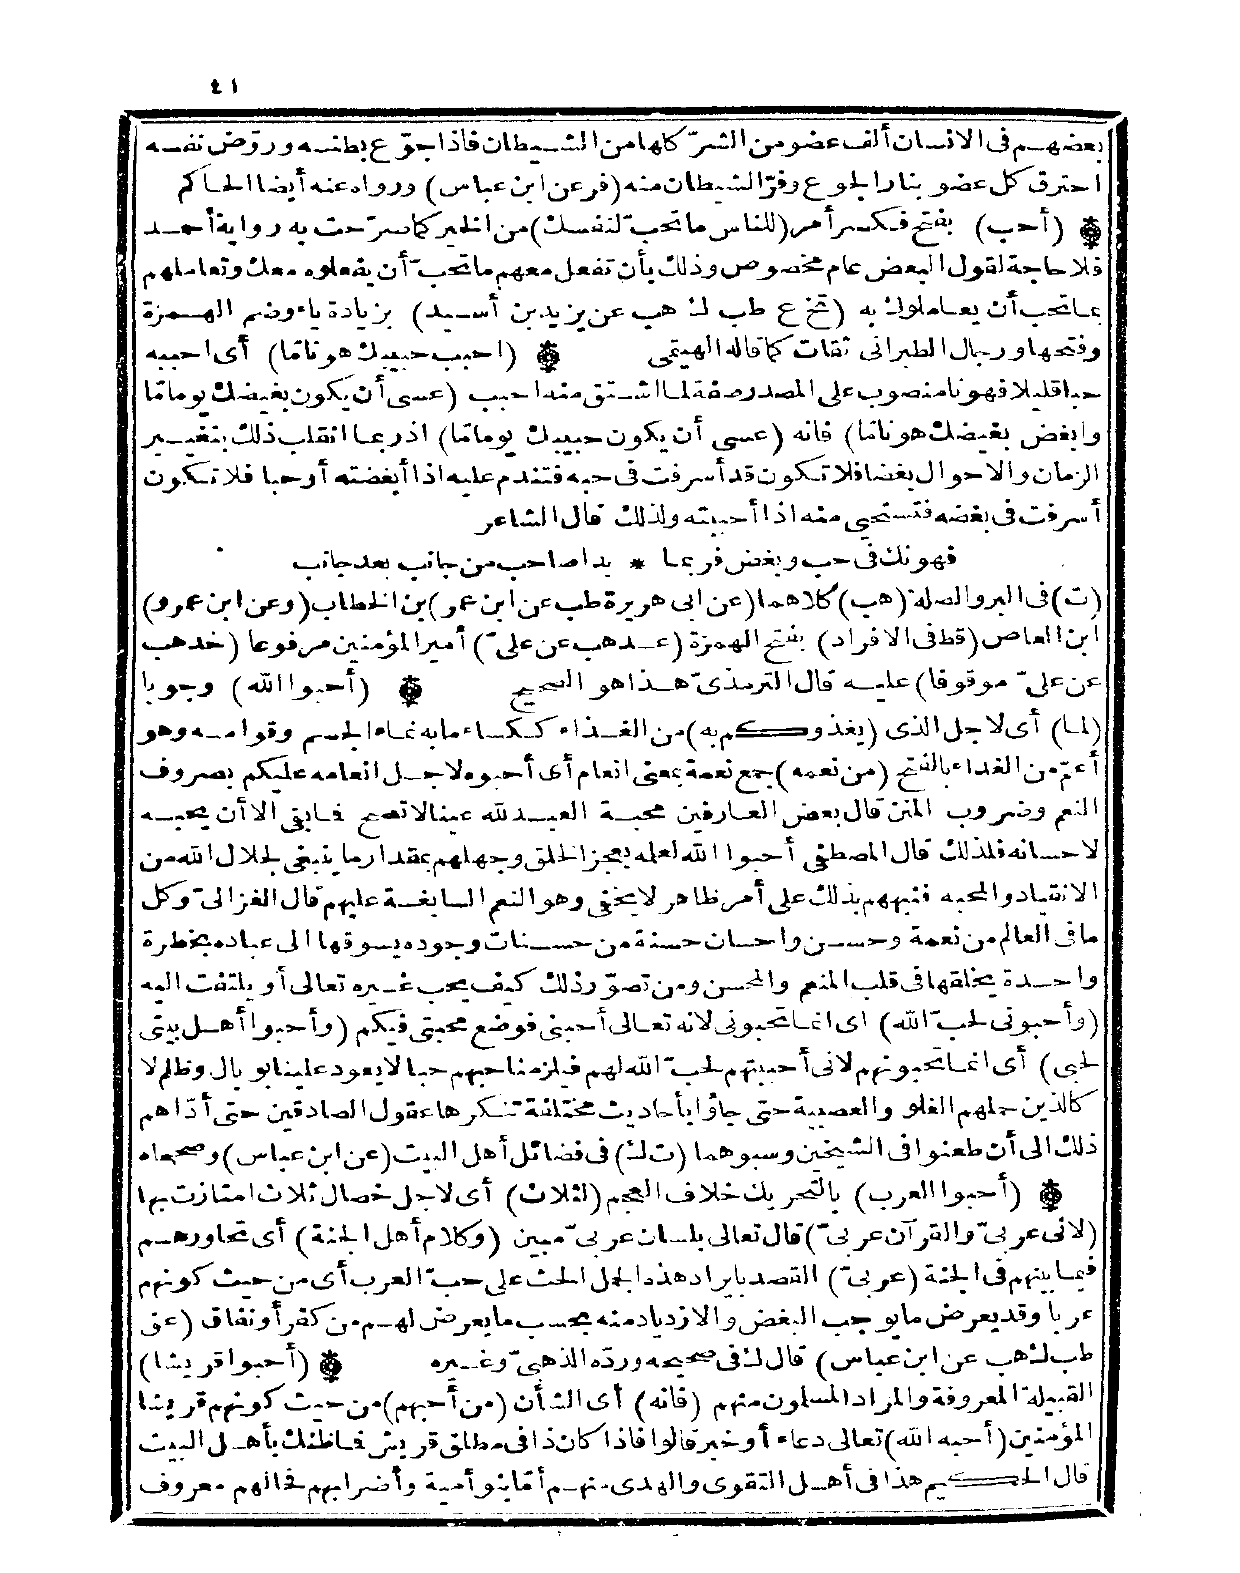 ٤١
بعضهم في الانسان ألف عضو من الشرّ كلها من الشيطان فاذا جوّع بطنه وروّض نفسه
احترق كل عضو بنار الجوع وفرّ الشيطان منه (فر عن ابن عباس) ورواه عنه أيضا الحاكم
(أحب) بفتح فكسر أمر (للناس ما تحبّ لنفسك) من الخير كما صرّحت به رواية أحمد
فلا حاجة لقول البعض عام مخصوص وذلك بأن تفعل معهم ما تحبّ أن يفعلوه معك وتعاملهم
بما تحب أن يعاملوك به (تخ ع طب ك هب عن يزيد بن أسيد) بزيادة ياء وضم الهمزة
وفتحها ورجال الطبراني ثقات كما قاله الهيتمي (احبب حبيبك هونا مّا) أي احببه
حبا قليلا فهونا منصوب على المصدر صفة لما اشتق منه احبب (عسى أن يكون بغيضك يوما مّا
وابغض بغيضك هونا مّا) فانه (عسى أن يكون حبيبك يوما مّا) اذ ربما انقلب ذلك بتغيير
الزمان والاحوال بغضا فلا تكون قد أسرفت في حبه فتندم عليه اذا أبغضته أو حبا فلا تكون
أسرفت في بغضه فتستحي منه اذا أحببته ولذلك قال الشاعر
فهونك في حب وبغض فربما * بدا صاحب من جانب بعد جانب
(ت) في البر والصلة (هب) كلاهما (عن ابي هريرة طب عن ابن عمر) بن الخطاب (وعن ابن عمرو)
ابن العاص (قط في الافراد) بفتح الهمزة (عد هب عن عليّ) أمير المؤمنين مرفوعا (خد هب
عن عليّ موقوفا) عليه قال الترمذيّ هذا هو الصحيح (أحبوا الله) وجوبا
(لما) أي لاجل الذي (يغذوكم به) من الغذاء ككساء ما به نماء الجسم وقوامه وهو
أعمّ من الغداء بالفتح (من نعمه) جمع نعمة بمعنى انعام أي أحبوه لاجل انعامه عليكم بصروف
النعم وضروب المنن قال بعض العارفين محبة العبد لله عينا لا تصح فما بقي الا أن يحبه
لاحسانه فلذلك قال المصطفى أحبوا الله لعله يعجز الخلق وجهلهم بمقدار ما ينبغي لجلال الله من
الانقياد والمحبه فنبههم بذلك على أمر ظاهر لا يخفى وهو النعم السابغة عليهم قال الغزاليّ وكل
ما في العالم من نعمة وحسن واحسان حسنة من حسنات وجوده يسوقها الى عباده بخطرة
واحدة يخلقها في قلب المنعم والمحسن ومن تصوّر ذلك كيف يحب غيره تعالى أو يلتفت اليه
(وأحبوني لحبّ الله) اي انما تحبوني لانه تعالى أحبني فوضع محبتي فيكم (وأحبوا أهل بيتي
لحبي) أي انما تحبونهم لاني أحببتهم لحبّ الله لهم فيلزمنا حبهم حبا لا يعود علينا بوبال وظلم لا
كالذين حملهم الغلو والعصبية حتى جاؤا بأحاديث مختلقة تنكرها عقول الصادقين حتى أدّاهم
ذلك الى أن طعنوا في الشيخين وسبوهما (ت ك) في فضائل أهل البيت (عن ابن عباس) وصححاه
(أحبوا العرب) بالتحريك خلاف العجم (لثلاث) أي لاجل خصال ثلاث امتازت بها
(لاني عربيّ والقرآن عربيّ) قال تعالى بلسان عربيّ مبين (وكلام أهل الجنة) أي تحاورهم
فيما بينهم في الجنة (عربيّ) القصد بايراد هذه الجمل الحث على حبّ العرب أي من حيث كونهم
عربا وقد يعرض ما يوجب البغض والازدياد منه بحسب ما يعرض لهم من كفر أو نفاق (عق
طب ك هب عن ابن عباس) قال ك في صحيحه وردّه الذهبيّ وغيره (أحبوا قريشا)
القبيلة المعروفة والمراد المسلون منهم (فانه) أي الشأن (من أحبهم) من حيث كونهم قريشا
المؤمنين (أحبه الله) تعالى دعاء أو خبر قالوا فاذا كان ذا في مطلق قريش فما ظنك بأهل البيت
قال الحكيم هذا في أهل التقوى والهدى منهم أمّا بنو أمية وأضرابهم فحالهم معروف